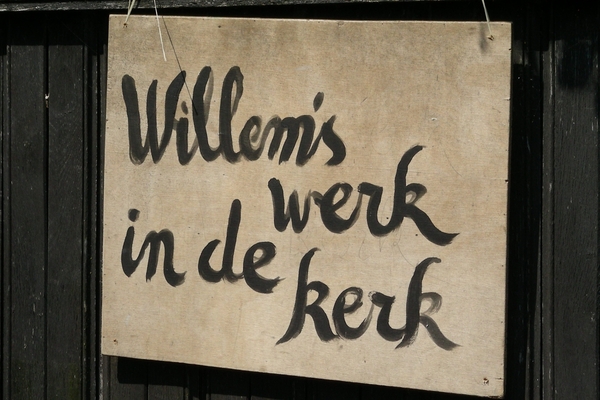 Willem's
werk
in de
kerk